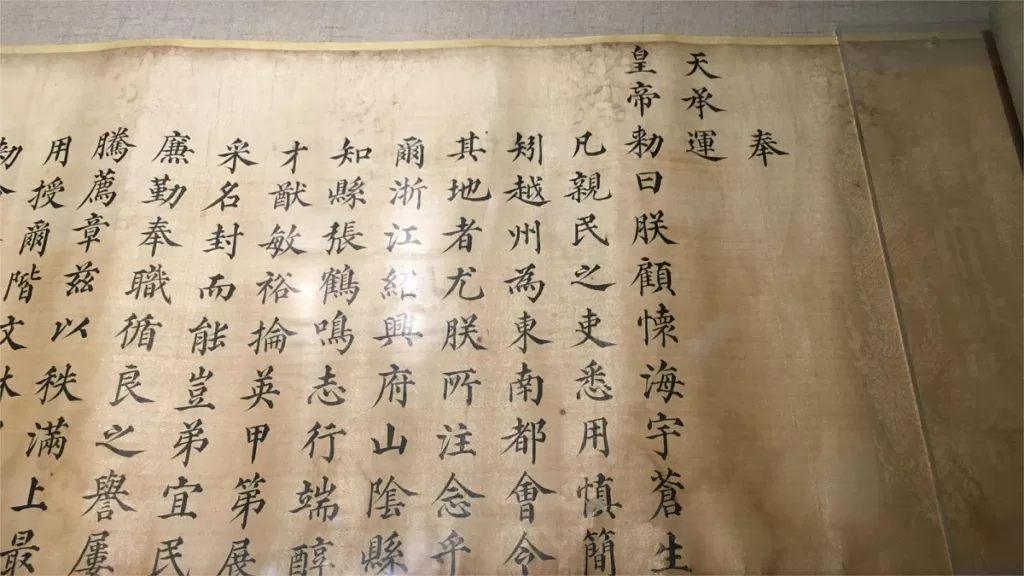 奉
天承運
皇帝勅曰朕顧懷海宇蒼生
凡親民之吏悉用慎簡
矧越州為東南都會令
其地者尤朕所注念乎
爾浙江紹興府山陰縣
知縣張鶴鳴志行端醇
才猷敏裕掄英甲第
采名封而能豈弟宜民
廉勤奉職循良之譽屢
騰薦章茲以秩滿上最
用授爾階文林
勅命